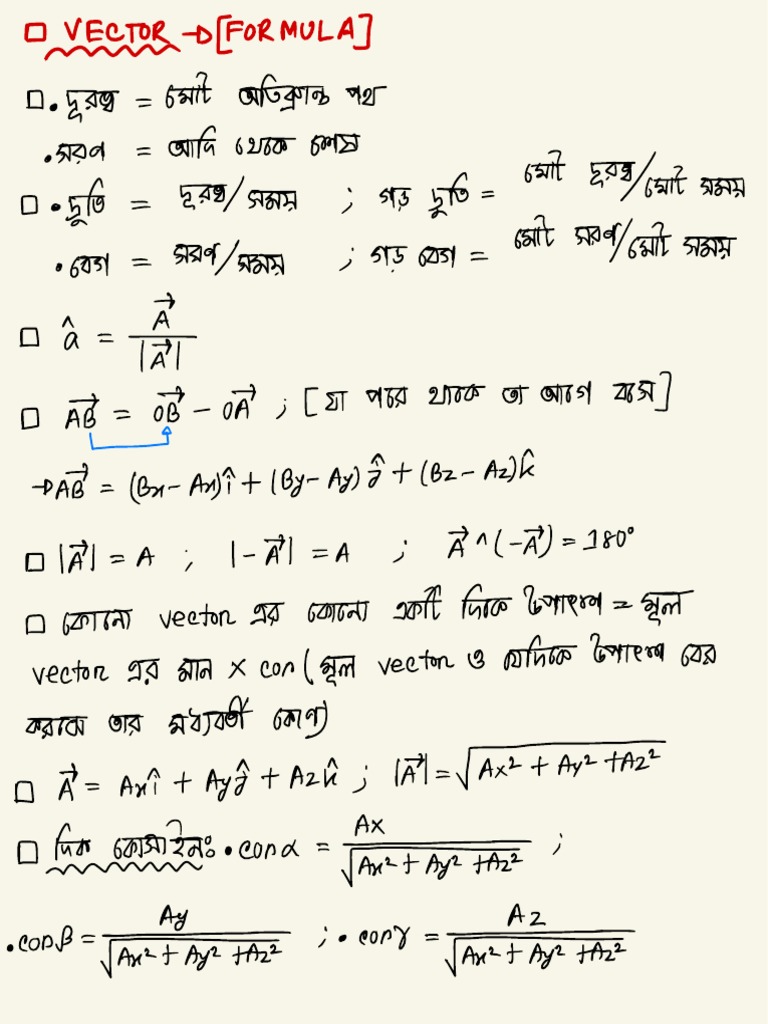 □ VECTOR → [FORMULA]
□ • দূরত্ব = মোট অতিক্রান্ত পথ
• সরণ = আদি থেকে শেষ
□ • দ্রুতি = দূরত্ব/সময় ; গড় দ্রুতি = মোট দূরত্ব/মোট সময়
• বেগ = সরণ/সময় ; গড় বেগ = মোট সরণ/মোট সময়
□ â = A⃗ / |A⃗|
□ AB⃗ = OB⃗ − OA⃗ ; [যা পরে থাকে তা আগে বসে]
→ AB⃗ = (Bx − Ax)î + (By − Ay)ĵ + (Bz − Az)k̂
□ |A⃗| = A ; |−A⃗| = A ; A⃗ ^ (−A⃗) = 180°
□ কোনো vector এর কোনো একটি দিকে উপাংশ = মূল
vector এর মান × cos (মূল vector ও যেদিকে উপাংশ বের
করবে তার মধ্যবর্তী কোণ)
□ A⃗ = Axî + Ayĵ + Azk̂ ; |A⃗| = √(Ax² + Ay² + Az²)
□ দিক কোসাইনঃ • cosα = Ax / √(Ax² + Ay² + Az²) ;
• cosβ = Ay / √(Ax² + Ay² + Az²) ; • cosγ = Az / √(Ax² + Ay² + Az²)